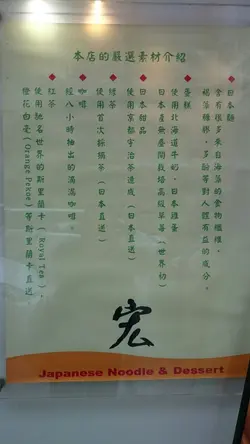 本店的嚴選素材介紹
◆日本餅
含有很多來自海藻的食物纖維,
褐藻糖膠,多酚等對人體有益的成分。
◆蛋糕
使用北海道牛奶,日本雞蛋
日本產無農藥開放栽培高級草莓(世界初)
◆日本甜品
使用京都宇治茶造成(日本直送)
◆綠茶
使用首次採摘茶(日本直送)
◆咖啡
經八小時抽出的滴滴咖啡。
◆紅茶
使用馳名世界的斯里蘭卡(Royal Tea),
橙花白毫(Orange Pekoe)等斯里蘭卡直送
宏
Japanese Noodle & Dessert